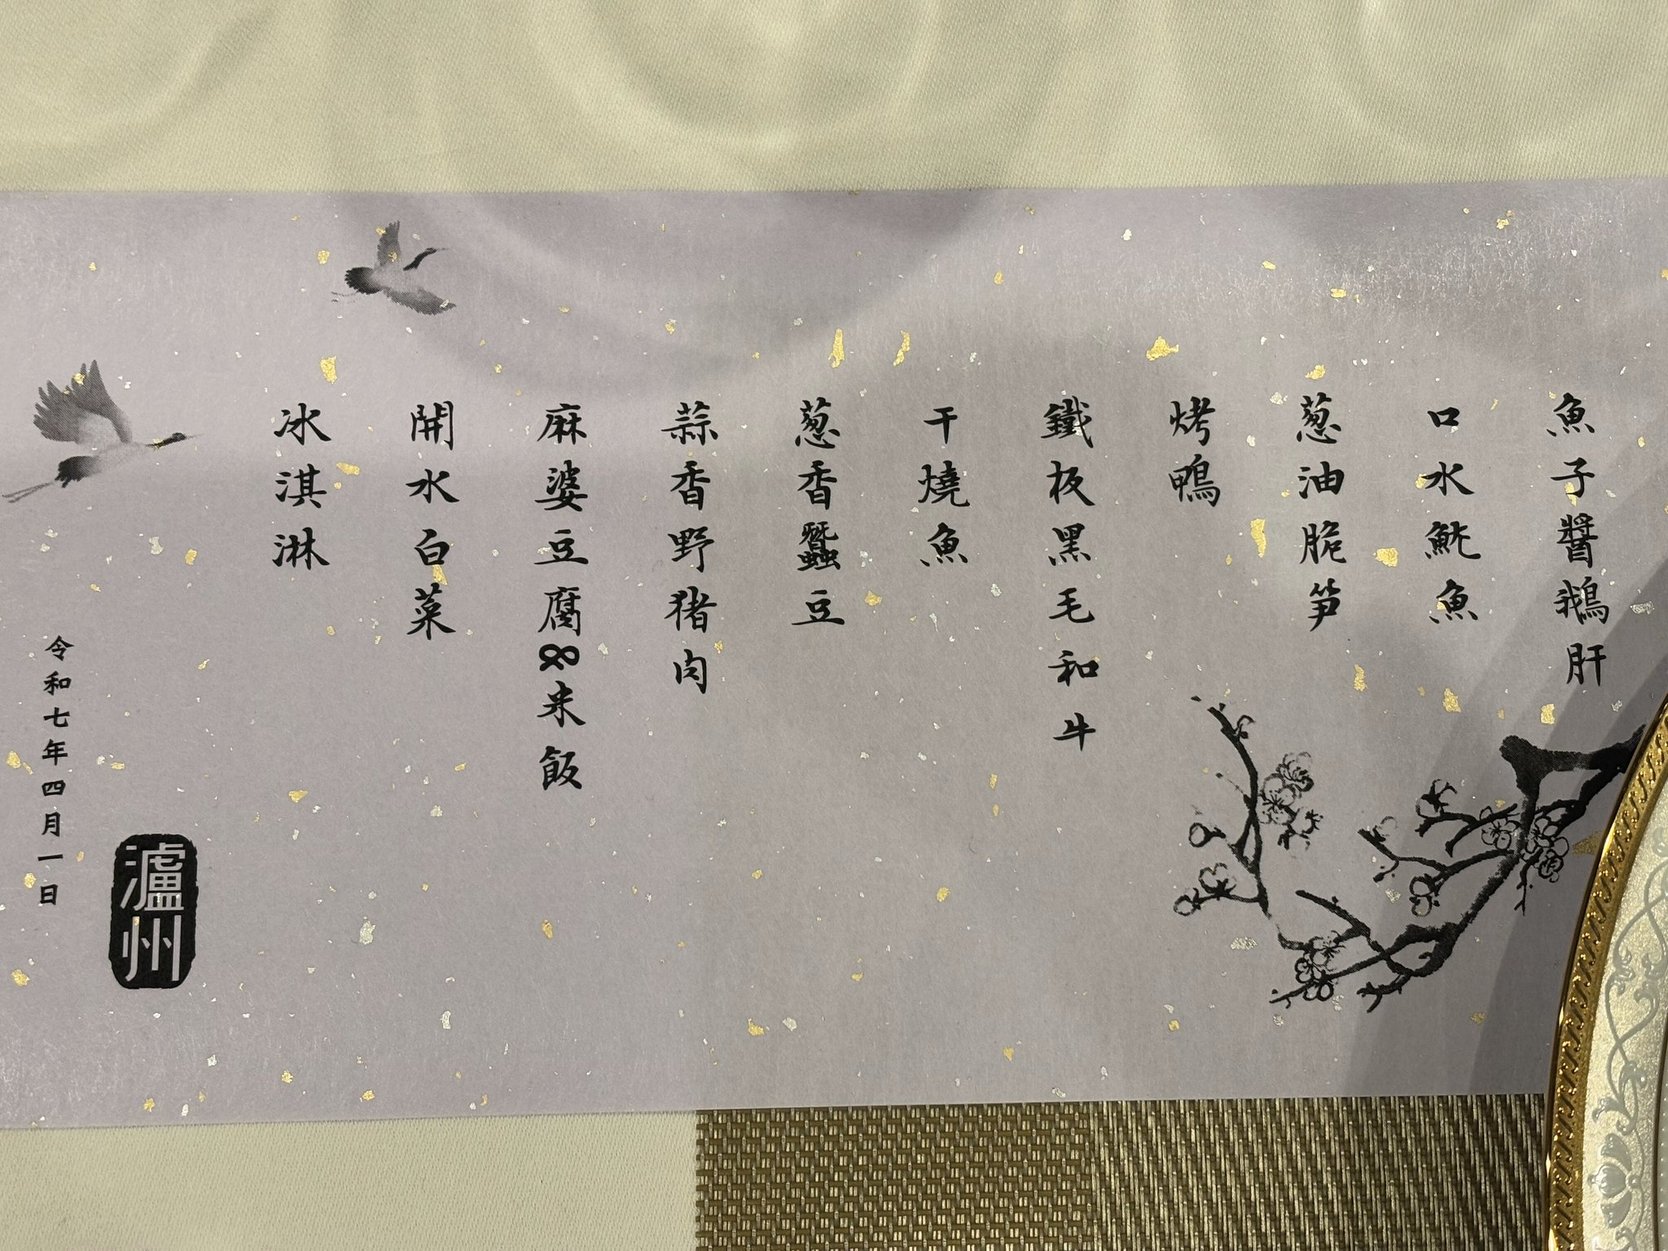 魚子醬鵝肝
口水魷魚
葱油脆笋
烤鴨
鐵板黑毛和牛
干燒魚
葱香蠶豆
蒜香野猪肉
麻婆豆腐&米飯
開水白菜
冰淇淋
令和七年四月一日
瀘州